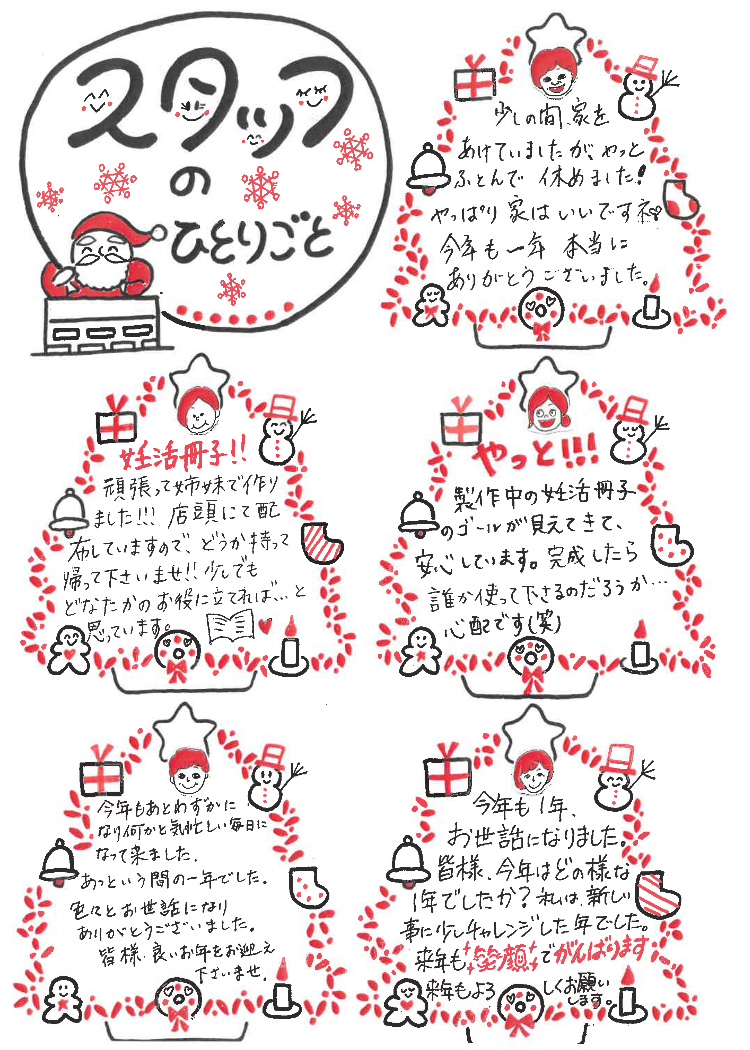 スタッフ
の
ひとりごと
少しの間、家を
あけていましたが、やっと
ふとんで 休めました!
やっぱり 家は いいですネ
今年も 一年 本当に
ありがとうございました。
妊活冊子!!
頑張って姉妹で作り
ました!!! 店頭にて配
布していますので、どうか持って
帰って下さいませ!! 少しでも
どなたかのお役に立てれば…と
思っています。
やっと!!!
製作中の妊活冊子
のゴールが見えてきて、
安心しています。完成したら
誰か使って下さるのだろうか…
心配です(笑)
今年もあとわずかに
なり何かと気忙しい毎日に
なって来ました。
あっという間の一年でした。
色々とお世話になり
ありがとうございました。
皆様、良いお年をお迎え
下さいませ。
今年も1年、
お世話になりました。
皆様、今年はどの様な
1年でしたか？私は、新しい
事に少しチャレンジした年でした。
来年も笑顔でがんばります
来年もよろしくお願い
します。